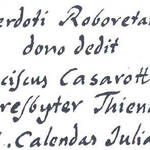 erdoti Roboreta
dono dedit
ciscus Casarott
resbyter Thienn
Calendas Julia